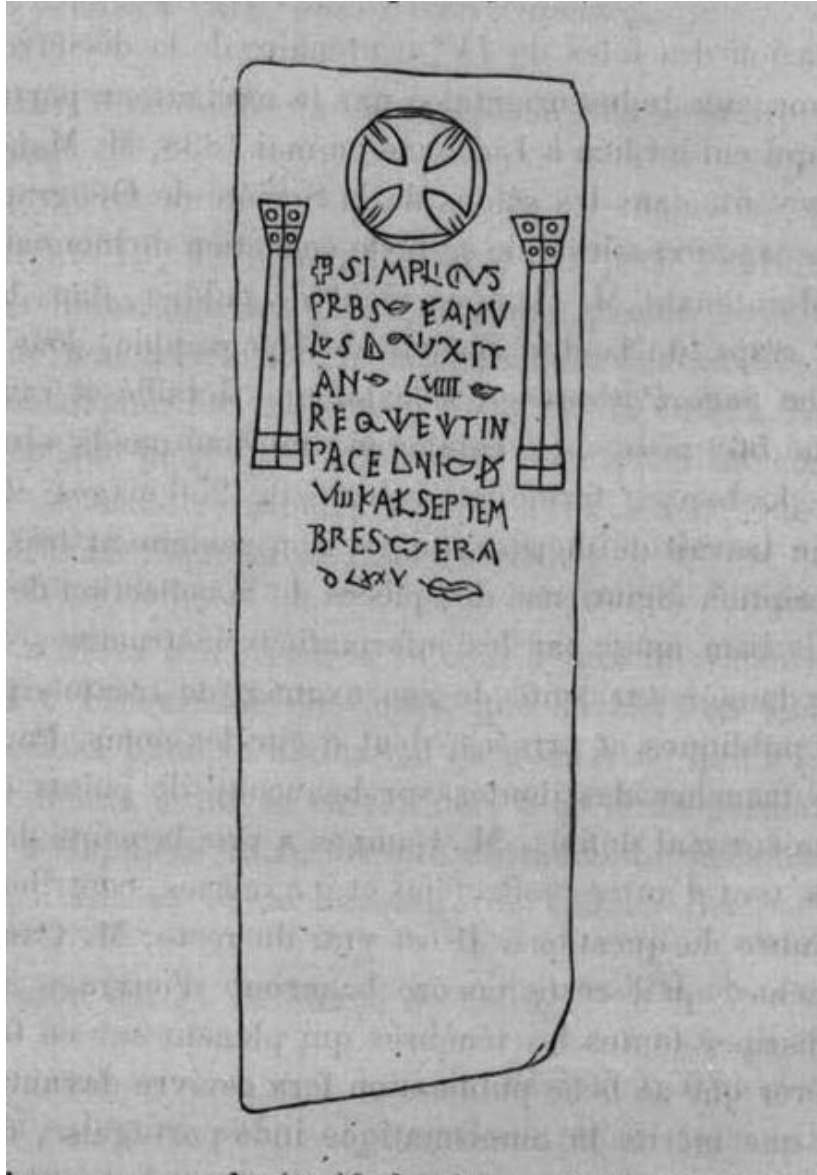 ⳨ SIMPLICIVS
PRBS FAMV
LVS DI VIXIT
AN LVIIII
REQVIEVIT IN
PACE DNI D
VIII KAL SEPTEM
BRES ERA
DLXXV